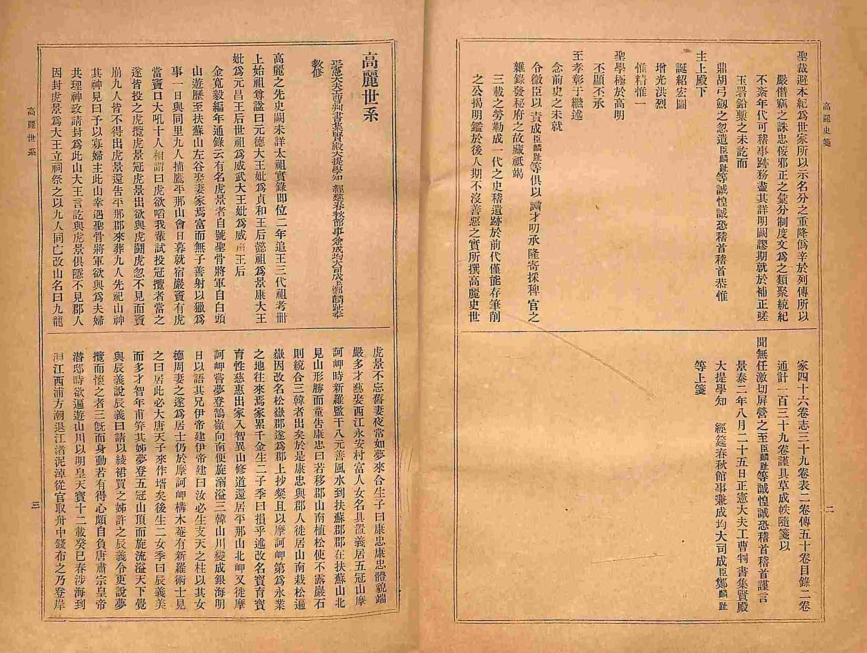 高麗史箋
聖裁避本紀爲世家所以示名分之重降僞辛於列傳所以
嚴僭竊之誅忠佞邪正之彙分制度文爲之類聚統紀
不紊年代可稽事跡務盡其詳明闕謬期就於補正嗟
玉署鉛槧之未訖而
鼎胡弓劒之忽遺臣麟趾等誠惶誠恐稽首稽首恭惟
主上殿下
誕紹宏圖
增光洪烈
惟精惟一
聖學極於高明
丕顯丕承
至孝彰于繼述
念前史之未就
令微臣以責成臣麟趾等俱以譾才叨承隆寄採稗官之
雜錄發秘府之故藏祗竭
三載之勞勒成一代之史稽遺跡於前代僅能存筆削
之公揭明鑑於後人期不沒善惡之實所撰高麗史世
家四十六卷志三十九卷表二卷傳五十卷目錄二卷
通計一百三十九卷謹具草成帙隨箋以
聞無任激切屛營之至臣麟趾等誠惶誠恐稽首稽首謹言
景泰二年八月二十五日正憲大夫工曹判書集賢殿
大提學知 經筵春秋館事兼成均大司成臣鄭麟趾
等上箋
二
高麗世系
正憲大夫工曹判書集賢殿大提學知 經筵春秋館事兼成均大司成臣鄭麟趾奉
敎修
高麗之先史闕未詳太祖實錄即位二年追王三代祖考冊
上始祖尊諡曰元德大王妣爲貞和王后懿祖爲景康大王
妣爲元昌王后世祖爲威武大王妣爲威肅王后
金寬毅編年通錄云有名虎景者自號聖骨將軍自白頭
山遊歷至扶蘇山左谷娶妻家焉富而無子善射以獵爲
事一日與同里九人捕鷹平那山會日暮就宿巖竇有虎
當竇口大吼十人相謂曰虎欲啗我輩試投冠攬者當之
遂皆投之虎攬虎景冠虎景出欲與虎鬪虎忽不見而竇
崩九人皆不得出虎景還告平那郡來葬九人先祀山神
其神見曰予以寡婦主此山幸遇聖骨將軍欲與爲夫婦
共理神政請封爲此山大王言訖與虎景俱隱不見郡人
因封虎景爲大王立祠祭之以九人同亡改山名曰九龍
虎景不忘舊妻夜常如夢來合生子曰康忠康忠體貌端
嚴多才藝娶西江永安村富人女名具置義居五冠山摩
訶岬時新羅監干八元善風水到扶蘇郡郡在扶蘇山北
見山形勝而童告康忠曰若移郡山南植松使不露巖石
則統合三韓者出矣於是康忠與郡人徙居山南栽松遍
嶽因改名松嶽郡遂爲郡上沙粲且以摩訶岬第爲永業
之地往來焉家累千金生二子季曰損乎述改名寶育寶
育性慈惠出家入智異山修道還居平那山北岬又徙摩
訶岬嘗夢登鵠嶺向南便旋溺溢三韓山川變成銀海明
日以語其兄伊帝建伊帝建曰汝必生支天之柱以其女
德周妻之遂爲居士仍於摩訶岬構木菴有新羅術士見
之曰居此必大唐天子來作壻矣後生二女季曰辰義美
而多才智年甫筓其姊夢登五冠山頂而旋流溢天下覺
與辰義說辰義曰請以綾裙買之姊許之辰義令更說夢
攬而懷之者三旣而身動若有得心頗自負唐肅宗皇帝
潛邸時欲遍遊山川以明皇天寶十二載癸巳春涉海到
浿江西浦方潮退江渚泥淖從官取舟中錢布之乃登岸
高麗世系
三